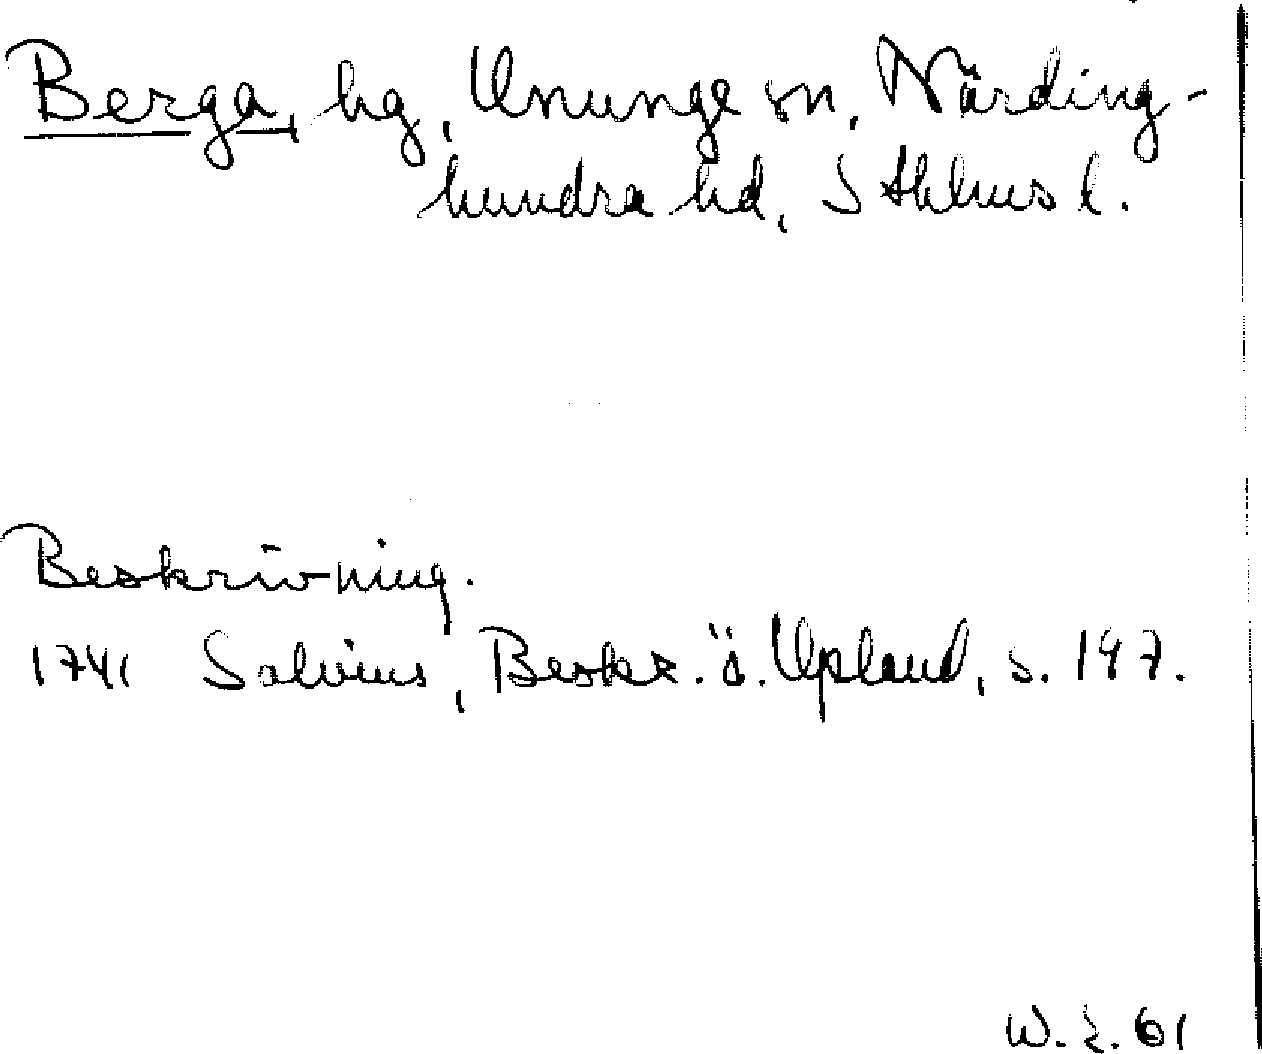 Berga, hg, Ununge sn, Närding-
hundra hd, Sthlms l.
Beskrivning.
1741 Salvius, Beskr. ö. Upland, s. 197.
W. E. 61